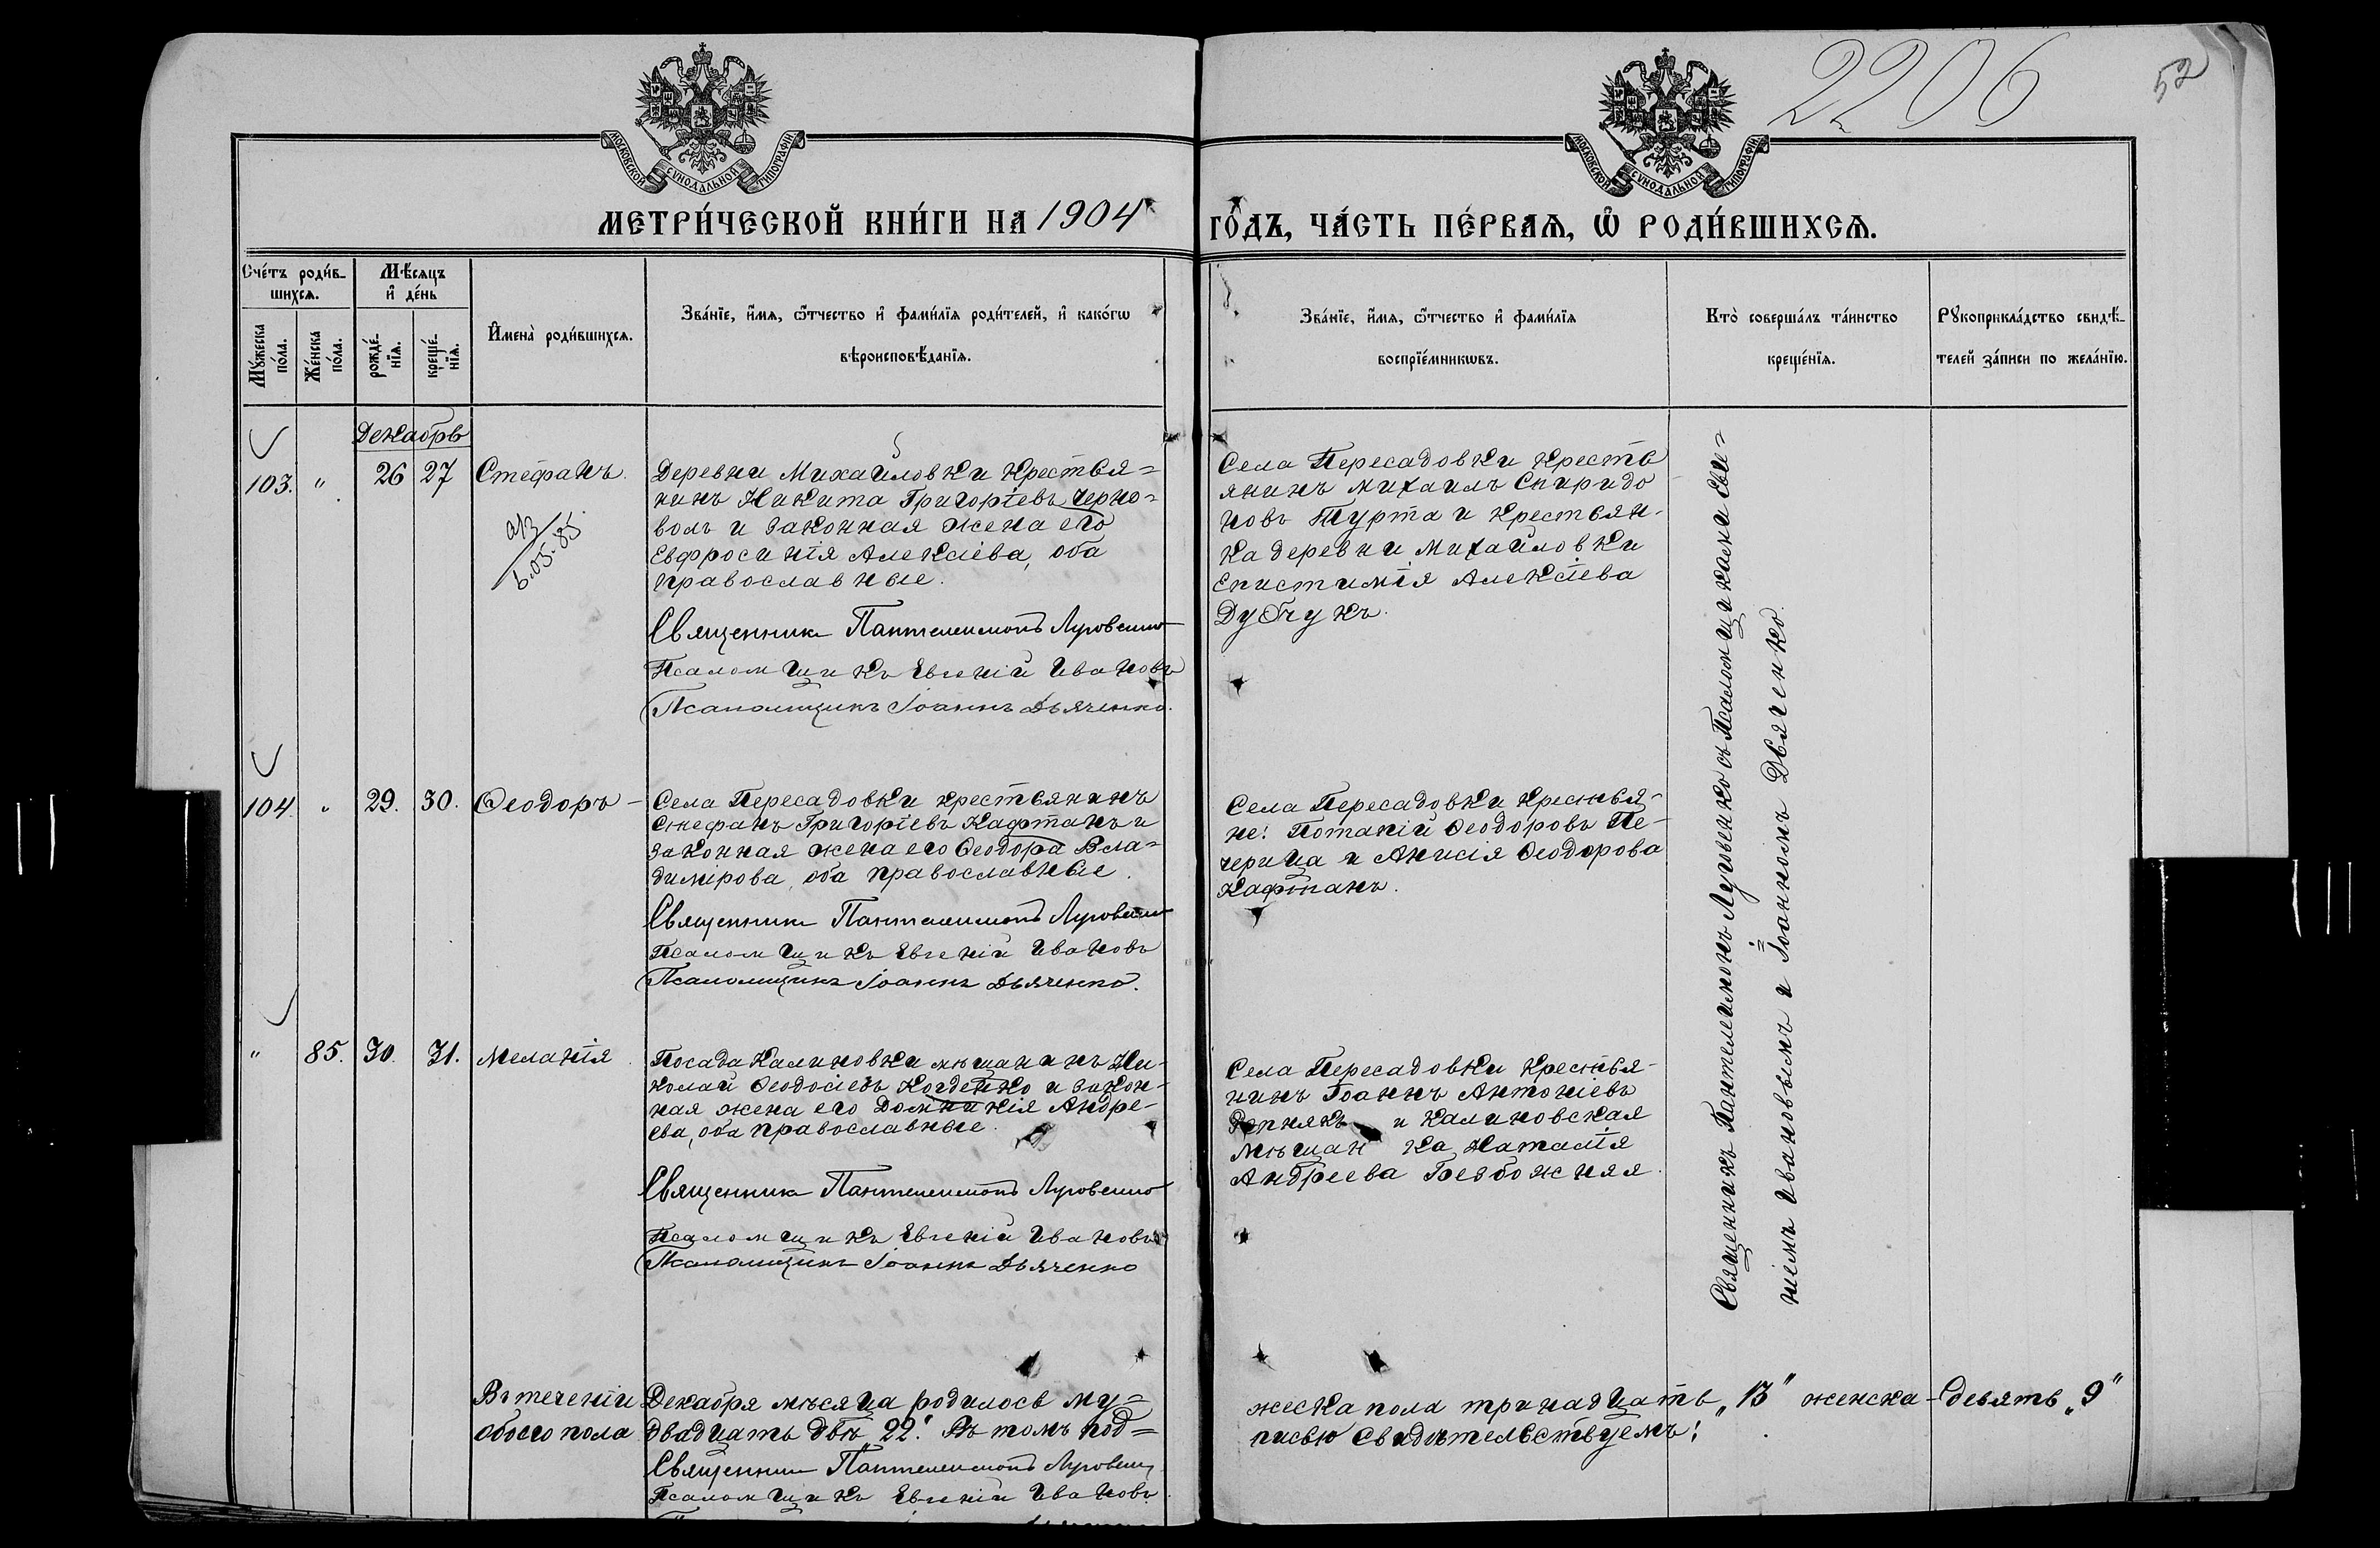 2206
52
МОСКОВСКОЙ СѴНОДАЛЬНОЙ ТИПОГРАФІИ
МОСКОВСКОЙ СѴНОДАЛЬНОЙ ТИПОГРАФІИ
МЕТРИ́ЧЕСКОЙ КНИ́ГИ НА 1904 ГО́ДЪ, ЧА́СТЬ ПЕ́РВАѦ, Ѡ҆ РОДИ́ВШИХСѦ.
Сче́тъ роди́в-
шихсѧ.
Мꙋ́жеска по́ла.
Же́нска по́ла.
Мѣ́сѧцъ
и҆ де́нь
рожде́-
нїѧ.
креще́-
нїѧ.
И҆мена̀ роди́вшихсѧ.
Зва́нїе, и҆́мѧ, ѻ҆́тчество и҆ фами́лїѧ роди́телей, и҆ како́гѡ
вѣроисповѣ́данїѧ.
Зва́нїе, и҆́мѧ, ѻ҆́тчество и҆ фами́лїѧ
воспрїе́мникѡвъ.
Кто̀ соверша́лъ та́инство
креще́нїѧ.
Рꙋкоприкла́дство свидѣ́-
телей за́писи по жела́нїю.
Декабрь
103. " 26 27 Стефанъ.
Деревни Михайловки крестья=
нинъ Никита Григоріевъ Черно=
волъ и законная жена его
Евфросинія Алексіева, оба
православные.
Священникъ Пантелеимонъ Луговенко
Псаломщикъ Евгеній Ивановъ
Псаломщикъ Іоаннъ Дьяченко.
Села Пересадовки кресть
янинъ Михаилъ Спиридо
новъ Турта и крестьян-
ка деревни Михайловки
Епистимія Алексіева
Дубчукъ.
104. " 29. 30. Ѳеодоръ -
Села Пересадовки крестьянинъ
Стефанъ Григоріевъ Кафтанъ и
законная жена его Ѳеодора Вла=
димірова, оба православные.
Священникъ Пантелеимонъ Луговенко
Псаломщикъ Евгеній Ивановъ
Псаломщикъ Іоаннъ Дьяченко.
Села Пересадовки крестья-
не: Потапій Ѳеодоровъ Пе-
черица и Анисія Ѳеодорова
Кафтанъ.
" 85. 30. 31. Меланія
Посада Калиновки мѣщанинъ Ни-
колай Ѳеодосіевъ Коцденко и закон-
ная жена его Домникія Андре-
ева, оба православные.
Священникъ Пантелеимонъ Луговенко
Псаломщикъ Евгеній Ивановъ
Псаломщикъ Іоаннъ Дьяченко
Села Пересадовки крестья-
нинъ Іоаннъ Антоніевъ
Репнякъ и Калиновская
мѣщанка Наталія
Андреева Безбожняя.
Священникъ Пантелеимонъ Луговенко съ Псаломщиками Евге=
ніемъ Ивановымъ и Іоанномъ Дьяченко.
Въ теченіи Декабря мѣсяца родилось му= жеска пола тринадцать „13" женска - девять „9"
обоего пола двадцать двѣ 22. Въ томъ под= писью свидѣтельствуемъ:
Священникъ Пантелеимонъ Луговенко
Псаломщикъ Евгеній Ивановъ.